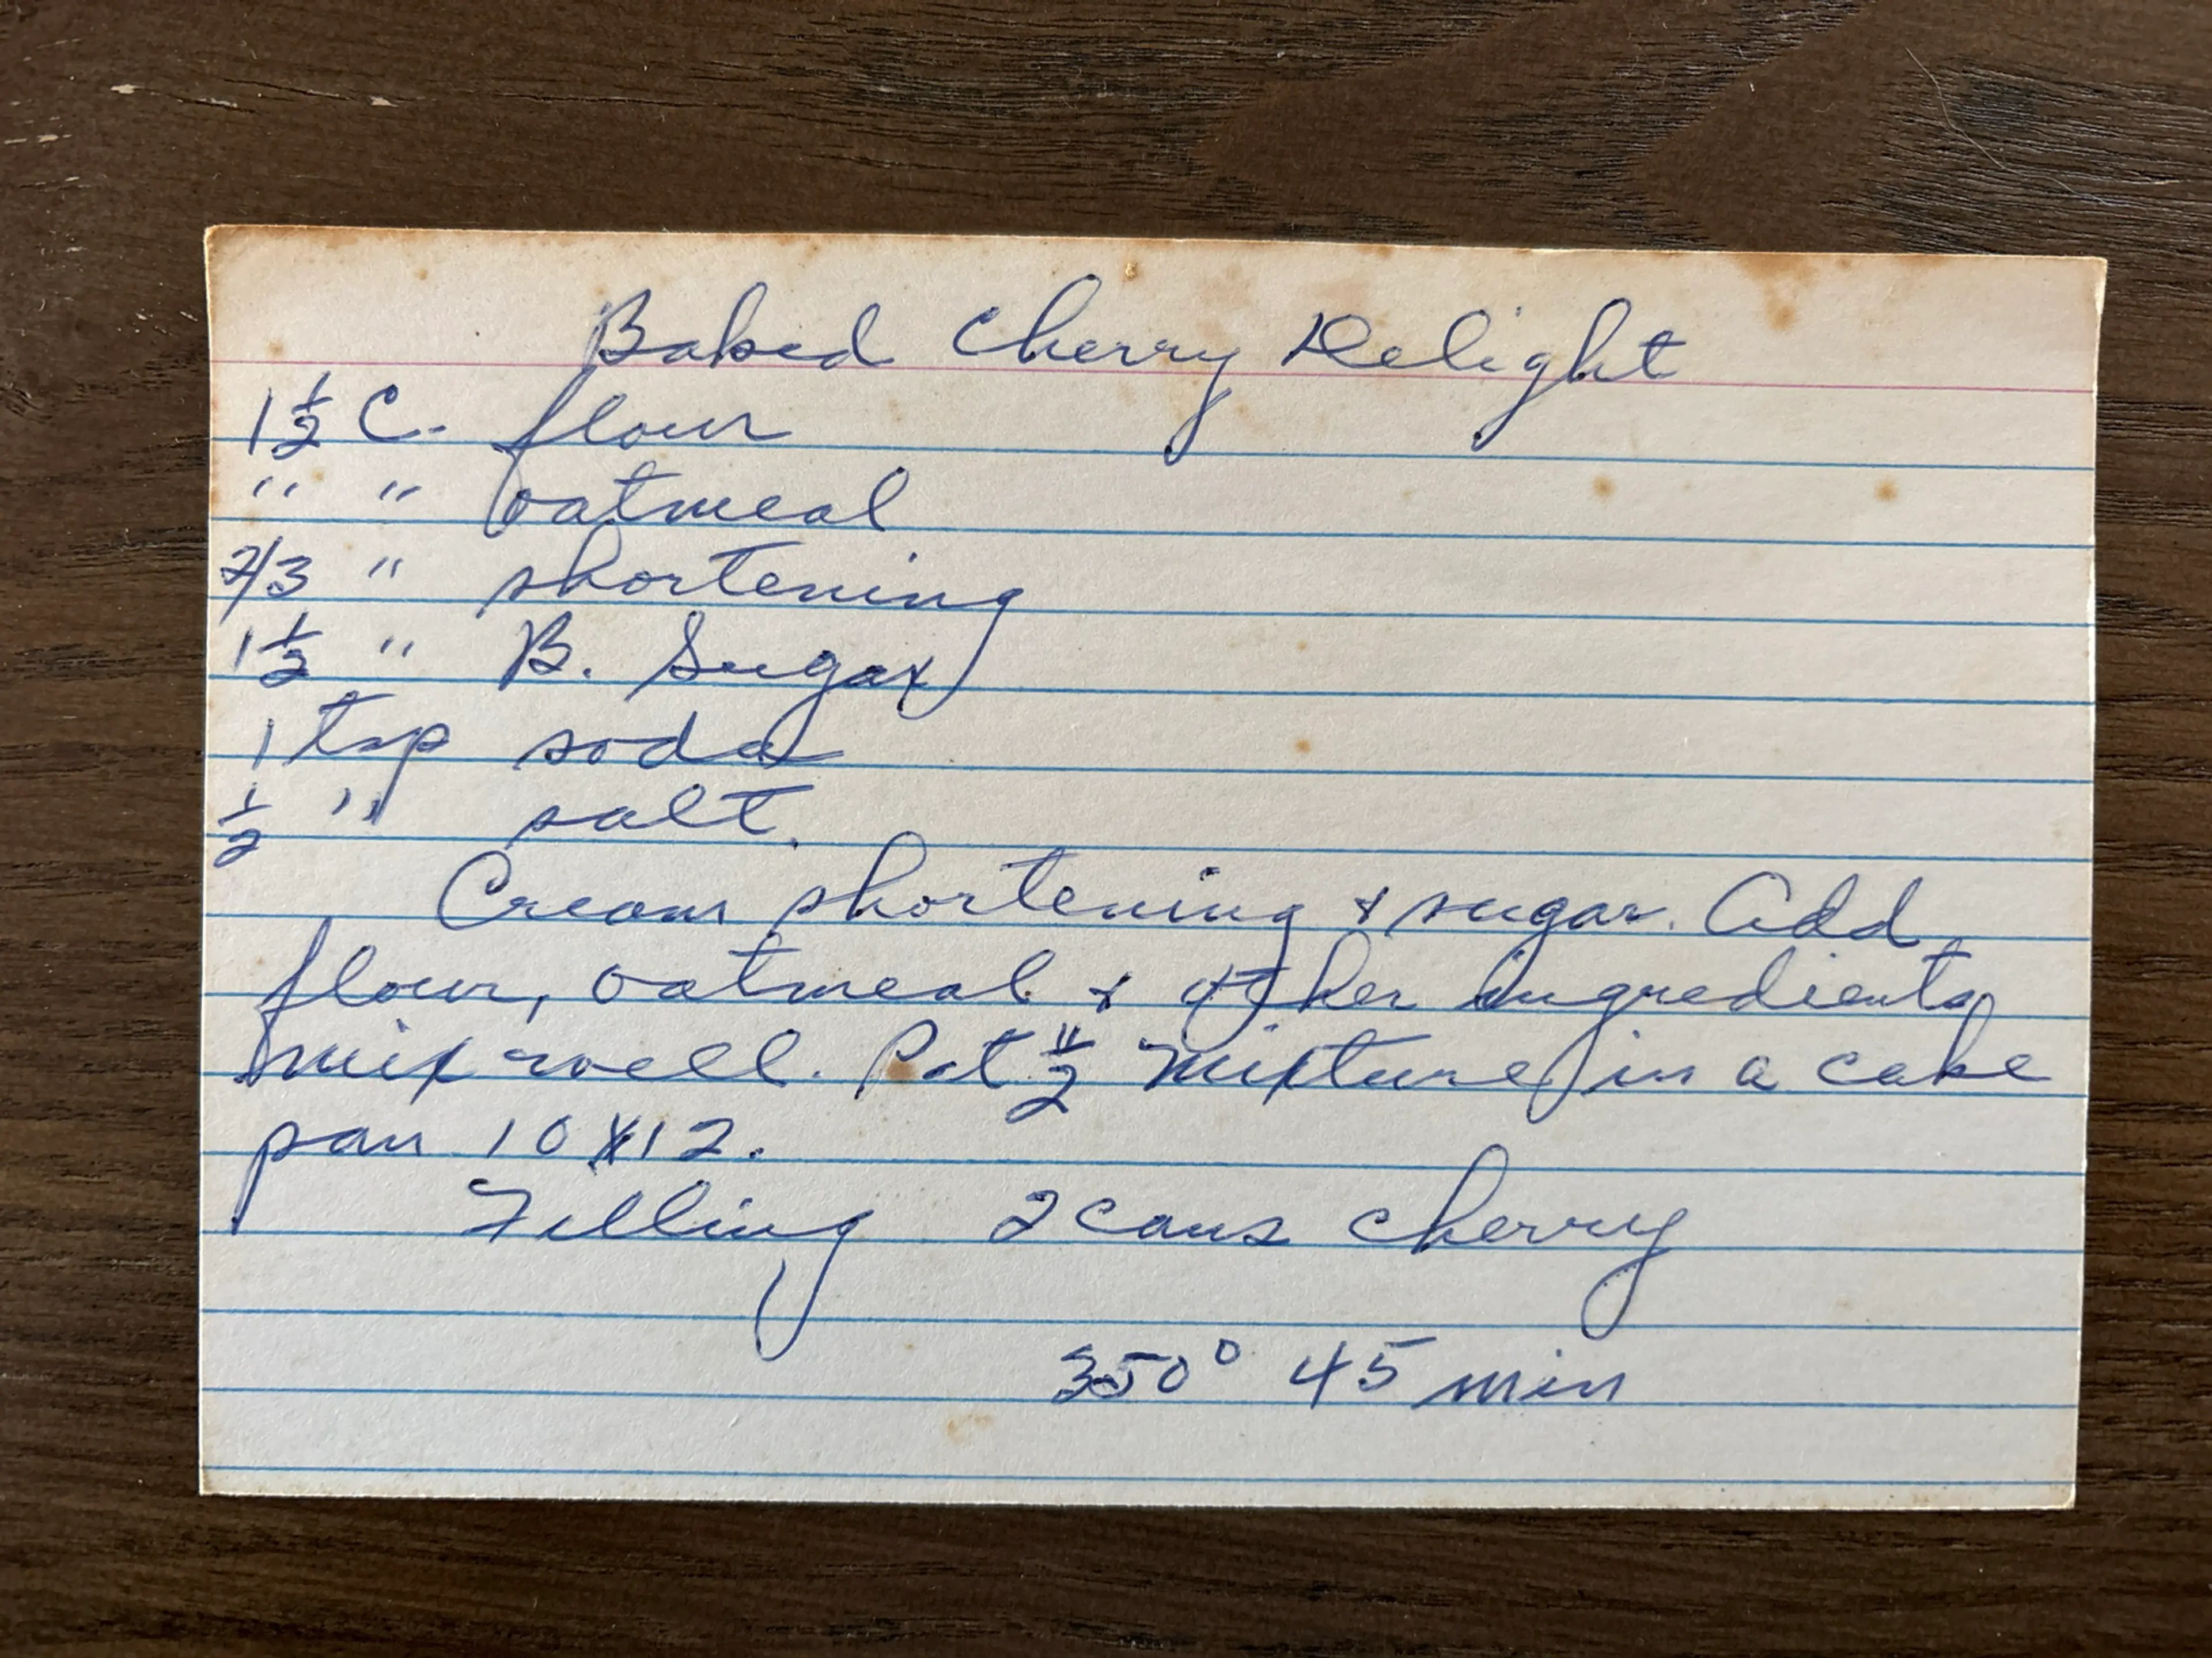 Baked Cherry Delight
1 1/2 C. flour
" " oatmeal
2/3 " shortening
1 1/2 " B. Sugar
1 tsp soda
1/2 " salt.
Cream shortening & sugar. Add
flour, oatmeal & other ingredients,
mix well. Pat 1/2 mixture in a cake
pan 10 X 12.
Filling 2 cans cherry
350° 45 min